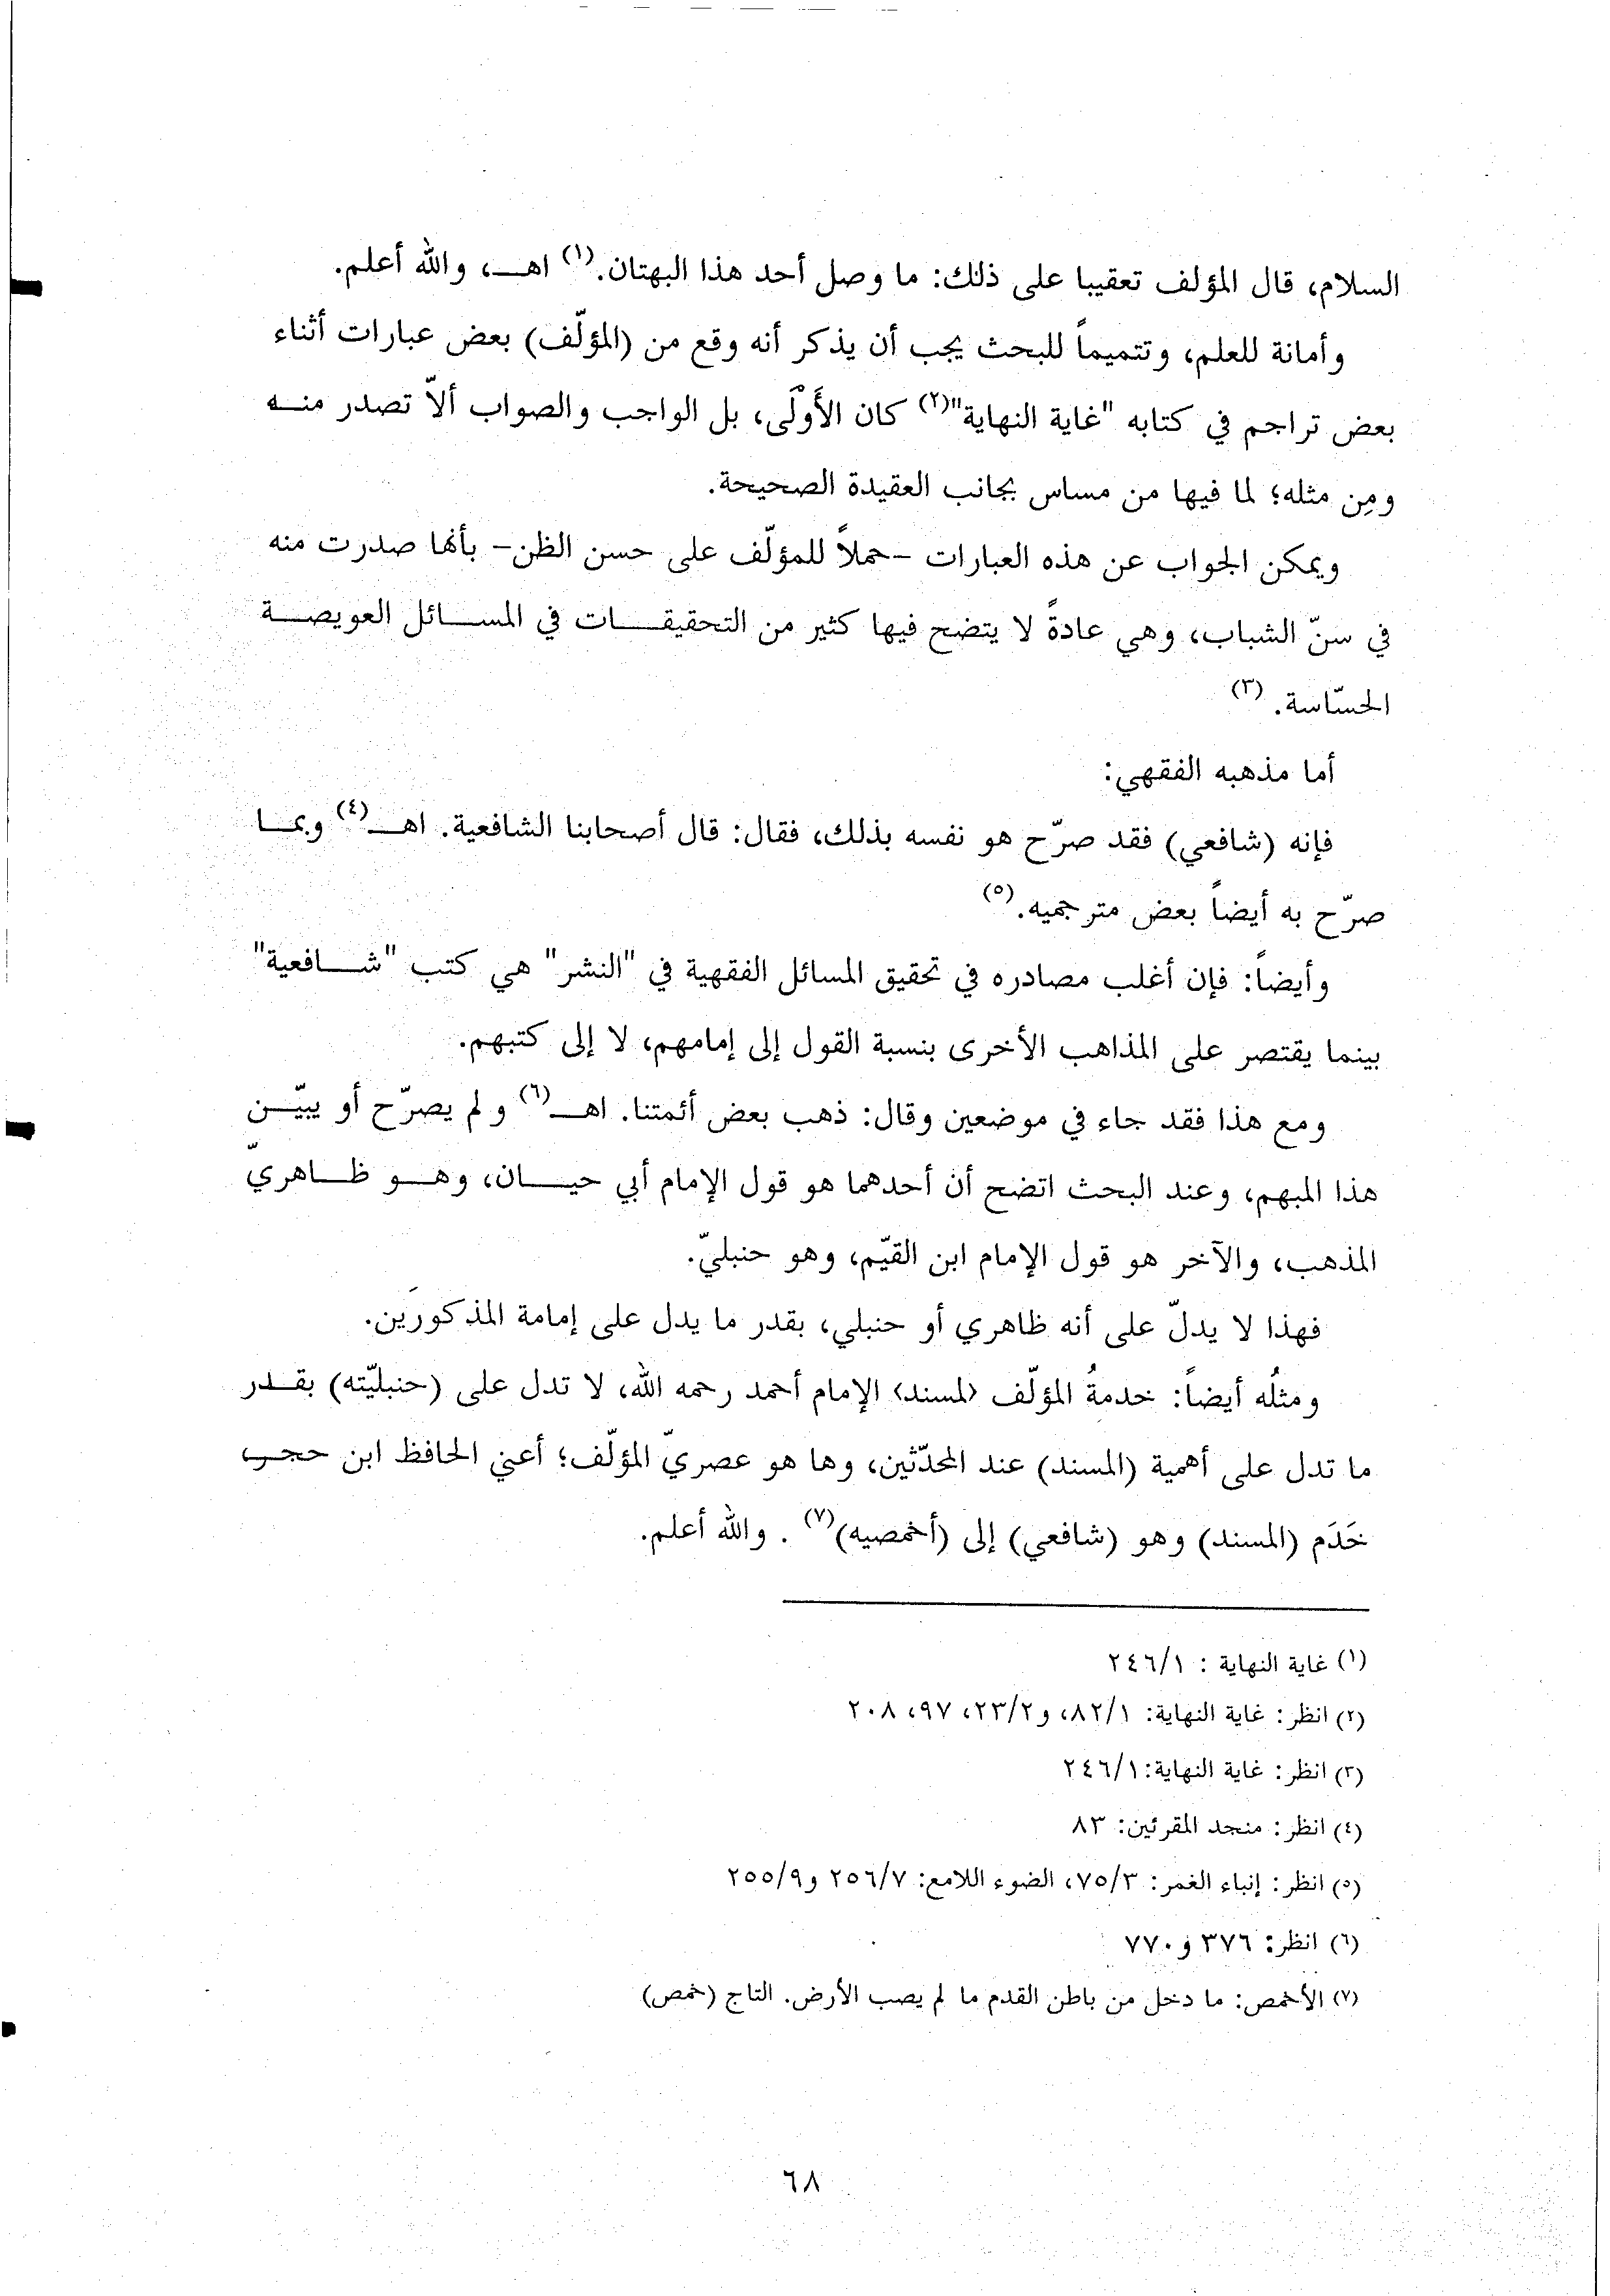 السلام، قال المؤلف تعقيبا على ذلك: ما وصل أحد هذا البهتان.(١) اهـ، والله أعلم.
وأمانة للعلم، وتتميماً للبحث يجب أن يذكر أنه وقع من (المؤلّف) بعض عبارات أثناء
بعض تراجم في كتابه "غاية النهاية"(٢) كان الأَوْلى، بل الواجب والصواب ألاّ تصدر منه
ومِن مثله؛ لما فيها من مساس بجانب العقيدة الصحيحة.
ويمكن الجواب عن هذه العبارات -حملاً للمؤلّف على حسن الظن- بأنها صدرت منه
في سنّ الشباب، وهي عادةً لا يتضح فيها كثير من التحقيقات في المسائل العويصة
الحسّاسة. (٣)
أما مذهبه الفقهي:
فإنه (شافعي) فقد صرّح هو نفسه بذلك، فقال: قال أصحابنا الشافعية. اهـ(٤) وبما
صرّح به أيضاً بعض مترجميه.(٥)
وأيضاً: فإن أغلب مصادره في تحقيق المسائل الفقهية في "النشر" هي كتب "شافعية"
بينما يقتصر على المذاهب الأخرى بنسبة القول إلى إمامهم، لا إلى كتبهم.
ومع هذا فقد جاء في موضعين وقال: ذهب بعض أئمتنا. اهـ(٦) ولم يصرّح أو يبيّن
هذا المبهم، وعند البحث اتضح أن أحدهما هو قول الإمام أبي حيان، وهو ظاهريّ
المذهب، والآخر هو قول الإمام ابن القيّم، وهو حنبليّ.
فهذا لا يدلّ على أنه ظاهري أو حنبلي، بقدر ما يدل على إمامة المذكورَين.
ومثلُه أيضاً: خدمةُ المؤلّف ⟨لمسند⟩ الإمام أحمد رحمه الله، لا تدل على (حنبليّته) بقدر
ما تدل على أهمية (المسند) عند المحدّثين، وها هو عصريّ المؤلّف؛ أعني الحافظ ابن حجر،
خَدَم (المسند) وهو (شافعي) إلى (أخمصيه)(٧) . والله أعلم.
(١) غاية النهاية : ٢٤٦/١
(٢) انظر: غاية النهاية: ٨٢/١، و٢٣/٢، ٩٧، ٢٠٨
(٣) انظر: غاية النهاية:٢٤٦/١
(٤) انظر: منجد المقرئين: ٨٣
(٥) انظر: إنباء الغمر: ٧٥/٣، الضوء اللامع: ٢٥٦/٧ و٢٥٥/٩
(٦) انظر: ٣٧٦ و٧٧٠
(٧) الأخمص: ما دخل من باطن القدم ما لم يصب الأرض. التاج (خمص)
٦٨